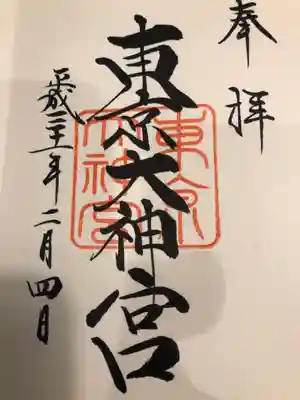 奉拝
東京大神宮
東京大神宮
平成三十一年二月四日